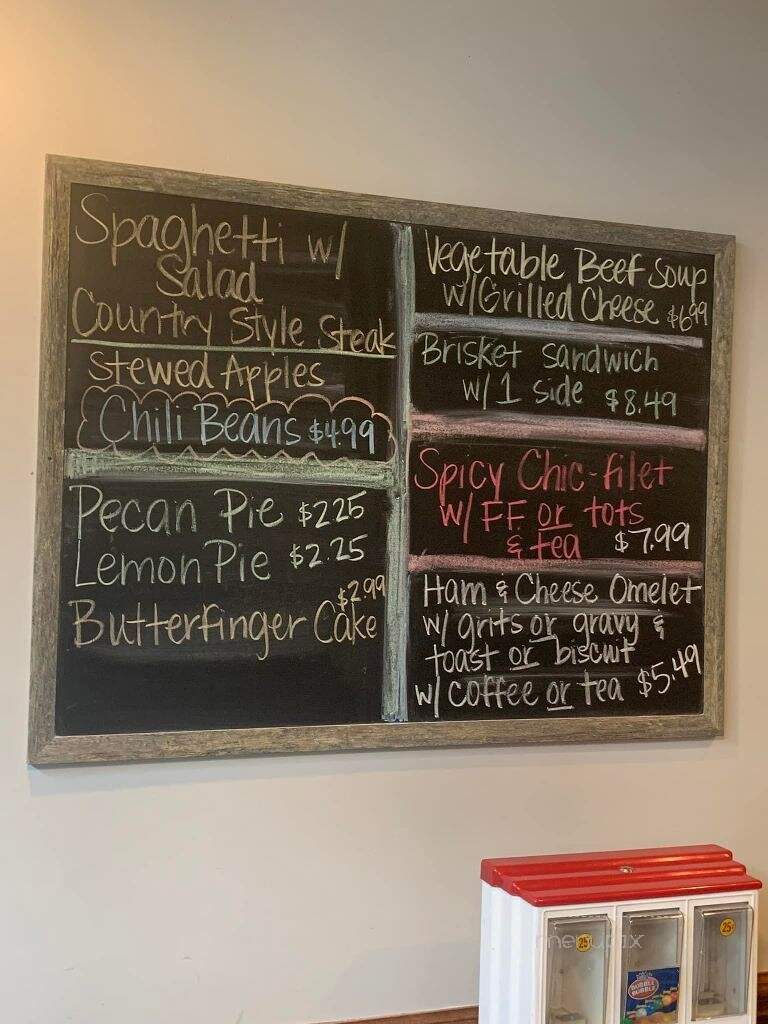 Spaghetti w/
Salad
Country Style Steak
Stewed Apples
Chili Beans $4.99
Pecan Pie $2.25
Lemon Pie $2.25
$2.99
Butterfinger Cake
Vegetable Beef Soup
w/Grilled Cheese $6.99
Brisket Sandwich
w/1 side $8.49
Spicy Chic-filet
w/ FF or tots
& tea $7.99
Ham & Cheese Omelet
w/ grits or gravy &
toast or biscuit
w/ coffee or tea $5.49
25¢
25¢
DUBBLE
BUBBLE